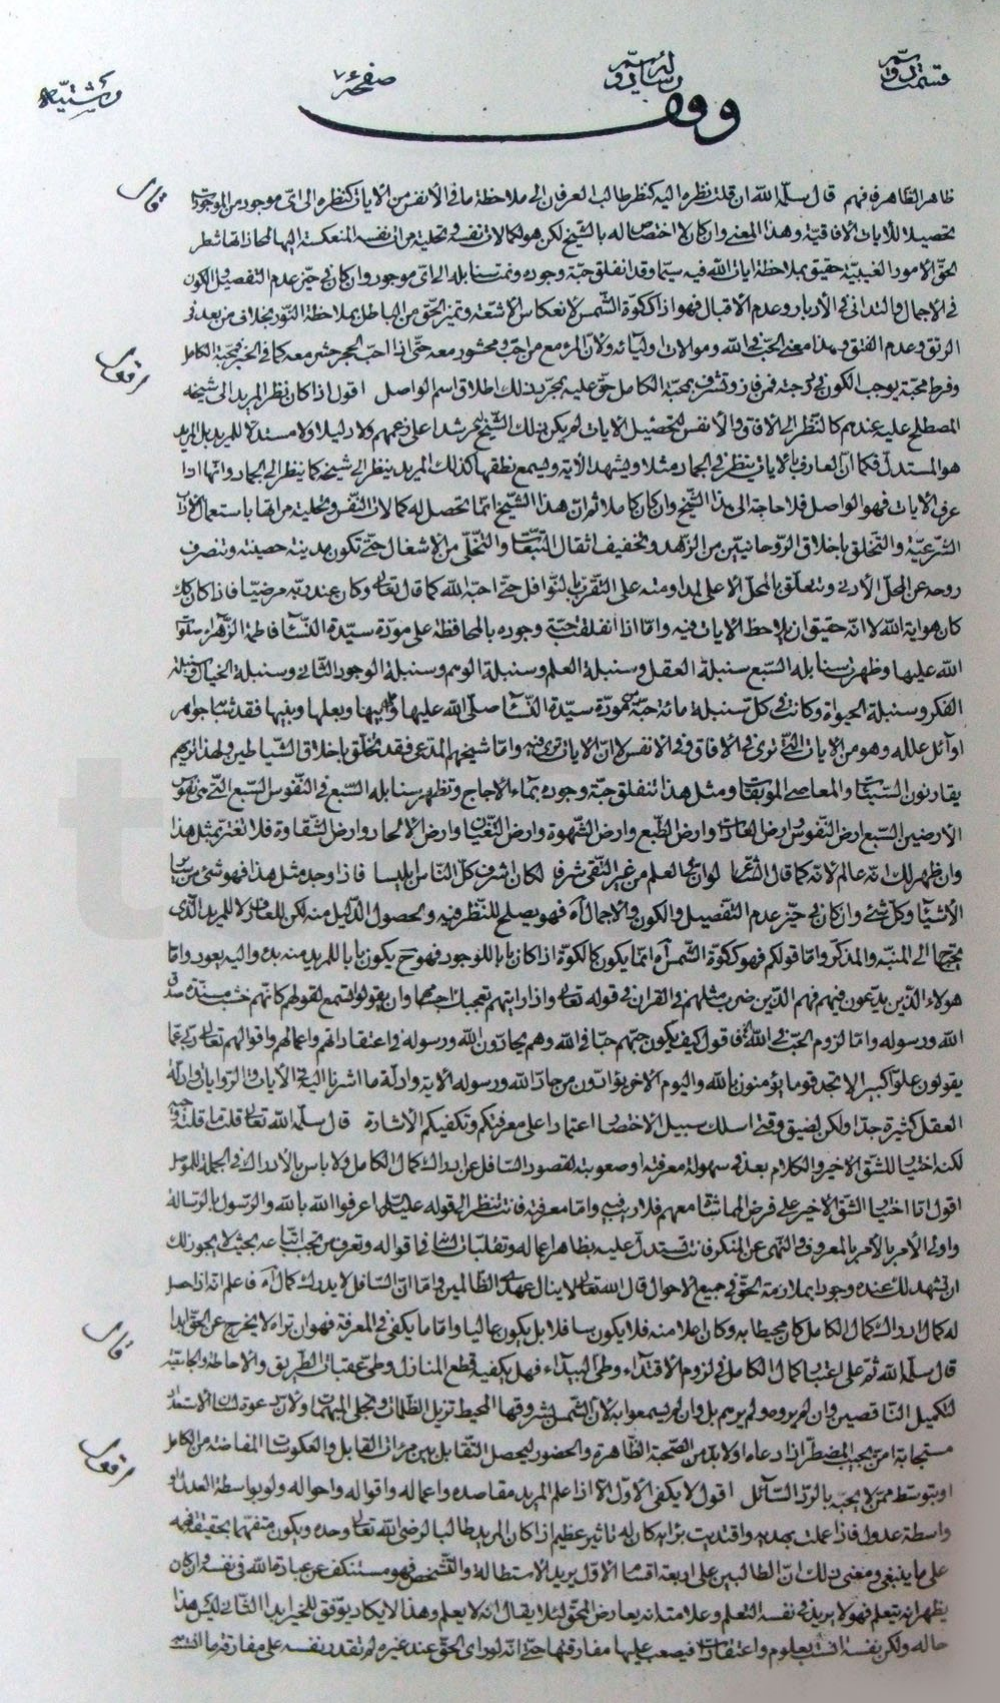 قسمت دوم رسائل صفحه ٧
وقف
ظاهر الظاهر فافهم قال سلمه الله ان قلت نظره اليه كنظر طالب العرفان الى ملاحظة ما فى الأنفس من الايات كنظره الى اى موجود من الموجودات
قال
تحصيلا للآيات الآفاقية وهذا المعنى وان كان لا اختصاص له بالشيخ لكن هو لكمالات نفسه وتخليته مرات نفسه المنعكسة اليها لمحاذاتها شطر
الحق الامور الغيبية حقيق بملاحظة ايات الله فيه سيما وقد انفلق حبة وجوده ونمت سنابله الى اى موجود وان كان فى حيز عدم التفصيل والكون
فى الاجمال والتدانى فى الأدبار وعدم الاقبال فهو اذا ككوة الشمس لانعكاس الاشعة وتميز الحق من الباطل بملاحظة النور بخلافى من بعد فى
الرتق وعدم الفتق وبهذا معنى الحب فى الله وموالات اوليائه ولأن المرء مع من احب ومحشور معه حتى اذا احب الحجر حشر معه كما فى الخبر فمحبة الكامل
وفرط محبة يوجب الكون فى درجته فمن فاز وتشرف بمحبة الكامل حق عليه بمجرد ذلك اطلاق اسم الواصل اقول اذا كان نظر المريد الى شيخه
اقول
المصطلح عليه عندهم كالنظر الى الآفاق والأنفس لتحصيل الآيات لم يكن ذلك الشيخ مرشدا على زعمهم ولا دليلا ولا مستدلا للمريد بل المريد
هو المستدل فكما ان العارف بالايات ينظر فى الجماد مثلا ويشهد الآية ويسمع نطقها كذلك المريد ينظر الى شيخه كما ينظر الى الجماد وانها اذا
عرف الايات فهو الواصل فلا حاجة الى هذا الشيخ وان كان كاملا ثم ان هذا الشيخ انما تحصل له كمالات النفس وتخلية مراتها باستعمال الآداب
الشرعية والتخلق باخلاق الروحانيين من الزهد وتخفيف اثقال التبعات والتخلى من الاشغال حتى تكون مدينة حصينة وتنصرف
روحه عن المحل الأدنى وتتعلق بالمحل الأعلى لمداومته على التقرب بالنوافل حتى احبه الله كما قال تعالى وكان عند ربه مرضيا فاذا كان كذلك
كان هو اية الله لانه حقيق ان يلاحظ الايات فيه واما اذا انفلقت حبة وجوده بالمحافظة على مودة سيدة النساء فاطمة الزهراء صلوات
الله عليها وظهرت سنابله السبع سنبلة العقل وسنبلة العلم وسنبلة الوهم وسنبلة الوجود الثانى وسنبلة الخيال وسنبلة
الفكر وسنبلة الحيوة وكانت فى كل سنبلة مائة حبة بمودة سيدة النساء صلى الله عليها وابيها وبعلها وبنيها فقد شابه جواهر
اوائل علله وهو من الايات التى ترى فى الآفاق وفى الانفس لان الايات ترى فيه واما شيخهم المدعى فقد تخلق باخلاق الشياطين ولهذا تريهم
يقارنون السيئات والمعاصى الموبقات ومثل هذا تنفلق حبة وجوده بماء الاجاج وتظهر سنابله السبع فى النفوس السبع التى هى نفوس
الأرضين السبع ارض النفوس ارض العادات وارض الطبع وارض الشهوة وارض الطغيان وارض الالحاد وارض الشقاوة فلا تغتر بمثل هذا
وان ظهر لك انه عالم لانه كما قال الشاعر لو ان للعلم من غير التقى شرفا لكان اشرف كل الناس ابليسا فاذا وجد مثل هذا فهو شىء من سائر
الأشياء وكل شىء وان كان فى حيز عدم التفصيل والكون فى الاجمال آه فهو يصلح للنظر فيه وتحصول الدليل منه لكن للعارف لا للمريد الذى
يحتاج الى المنبه والمذكر واما قولكم فهو ككوة الشمس آه انما يكون كالكوة اذا كان بابا للوجود فهو ح يكون بابا للمريد منه بدء واليه يعود واما
هؤلاء الذين يدعون فيهم فهم الذين ضرب مثلهم فى القران فى قوله تعالى واذا رايتهم تعجبك اجسامهم وان يقولوا تسمع لقولهم كانهم خشب مسندة صدق
الله ورسوله واما لزوم الحب فى الله فاقول كيف يكون حبهم حبا فى الله وهم يحادون الله ورسوله فى اعتقاداتهم واعمالهم واقوالهم تعالى ربى عما
يقولون علوا كبيرا لا تجد قوما يؤمنون بالله واليوم الآخر يوادون من حاد الله ورسوله الآية وادلة ما اشرنا اليه فى الآيات والروايات وادلة
العقل كثيرة جدا ولكن لضيق وقتى اسلك سبيل الاختصار اعتمادا على معرفتكم وتكفيكم الاشارة قال سلمه الله تعالى قلت ما قلته وجيه
لكنه اختيار للشق الاخير والكلام بعد فى سهولة معرفته او صعوبته لقصور السافل عن ادراك كمال الكامل ولا باس بالادراك فى الجملة للموصل
اقول اما اختيار الشق الاخير على فرض المماشاة معهم فلا ريب فيه واما معرفته فانت تنظر الى قوله عليه السلام اعرفوا الله بالله والرسول بالرسالة
واولى الأمر بالأمر بالمعروف والنهى عن المنكر فانت تستدل عليه بظاهر اعماله وتقلبات لسانه فى اقواله وتعرف من يجب اتباعه بحيث لا يجوز لك
ان تشهد لله عنده وجودا بملازمة الحق فى جميع الاحوال قال الله تعالى لا ينال عهدى الظالمين واما ان السافل لا يدرك كمال آه فاعلم انه اذا حصل
له كمال ادراك كمال الكامل كان محيطا به وكان اعلا منه فلا يكون سافلا بل يكون عاليا واما ما يكفى فى المعرفة فهو ان تراه لا يخرج عن الحق ابدا
قال سلمه الله ثم على اعتبار كمال الكامل فى لزوم الاقتداء وطى البيداء فهل يكفيه قطع المنازل وطى عقبات الطريق والاحاطة والجامعية
قال
لتكميل الناقصين وان لم يروه ولم يرهم بل وان لم يسمعوا به لان الشمس بشروقها المحيط تزيل الظلمات وتجلى المبهمات ولان دعوة لسان الاستعداد
مستجابة امن يجيب المضطر اذا دعاه او لا بد من الصحبة الظاهرة والحضور ليحصل التقابل بين مرات القابل والعكوسات المفاضة من الكامل
او بتوسط ممن لا يجبه بالرد السائل اقول لا يكفى الأول الا اذا علم المريد مقاصده واعماله واقواله واحواله ولو بواسطة العدل او
اقول
واسطة عدول فاذا عملت بهديه واقتديت برأيه كان له تاثير عظيم اذا كان المريد طالبا لرضى الله تعالى وحده ويكون متفهما بحقيقة فهمه
على ما ينبغى ومعنى ذلك ان الطالبين على اربعة اقسام الاول يريد الاستطالة والتشخص فهو مستنكف عن عبادة الله فى نفسه وان كان
يظهر انه يتعلم فهو لا يريد فى نفسه التعلم وعلامته انه يعارض المحق لئلا يقال انه لا يعلم وهذا لا يكاد يوفق للخير ابدا الثانى ليس هذا
حاله ولكن نفسه انست بعلوم واعتقادات فيصعب عليها مفارقتها حتى انه لو راى الحق عند غيره لم تقدر نفسه على مفارقة ما انست